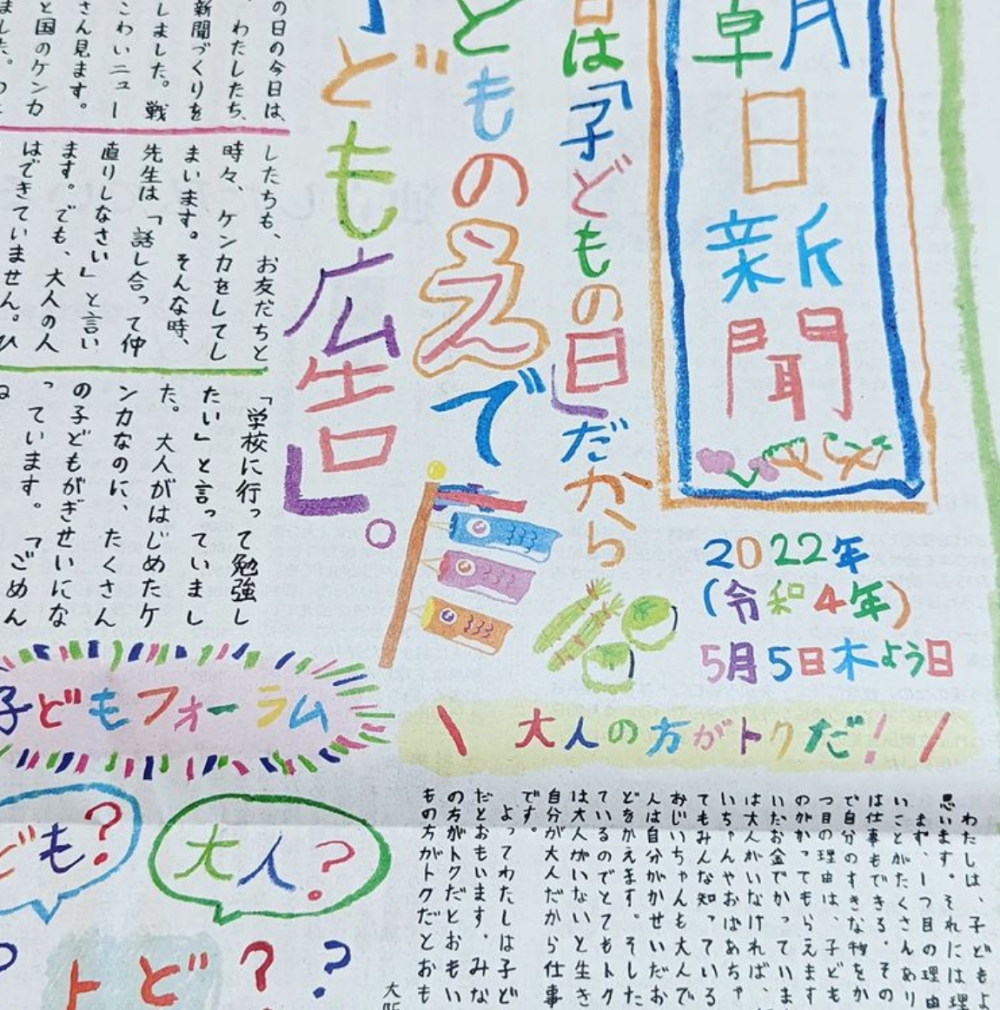 朝日新聞
2022年
(令和4年)
5月5日木よう日
日は「子どもの日」だから
どものえで
ども広告」。
の日の今日は、
わたしたち、
新聞づくりを
しました。戦
こわいニュー
さん見ます。
と国のケンカ
ました。
したちも、お友だちと
時々、ケンカをしてし
まいます。そんな時、
先生は「話し合って仲
直りしなさい」と言い
ます。でも、大人の人
はできていません。ひ
「学校に行って勉強し
たい」と言っていまし
た。大人がはじめたケ
ンカなのに、たくさん
の子どもがぎせいにな
っています。「ごめん
ね
子どもフォーラム
\ 大人の方がトクだ! /
ども?
大人?
トど??
わたしは、子どもよ
思います。それには理
まず、一つ目の理由
いことがたくさんあり
は仕事もできる、その
で自分のすきな物をか
つ目の理由は、子ども
のがかってもらえます
いたお金でかっていま
は大人がいなければ、
いちゃんやおばあちゃ
てもみんな知っている
おじいちゃんも大人で
人は自分がかせいだお
どをかえます。そした
ているのでとてもトク
は大人がいないと生き
自分が大人だから仕事
です。
よってわたしは子ど
だとおもいます、みな
の方がトクだとおもい
もの方がトクだとおも
大阪